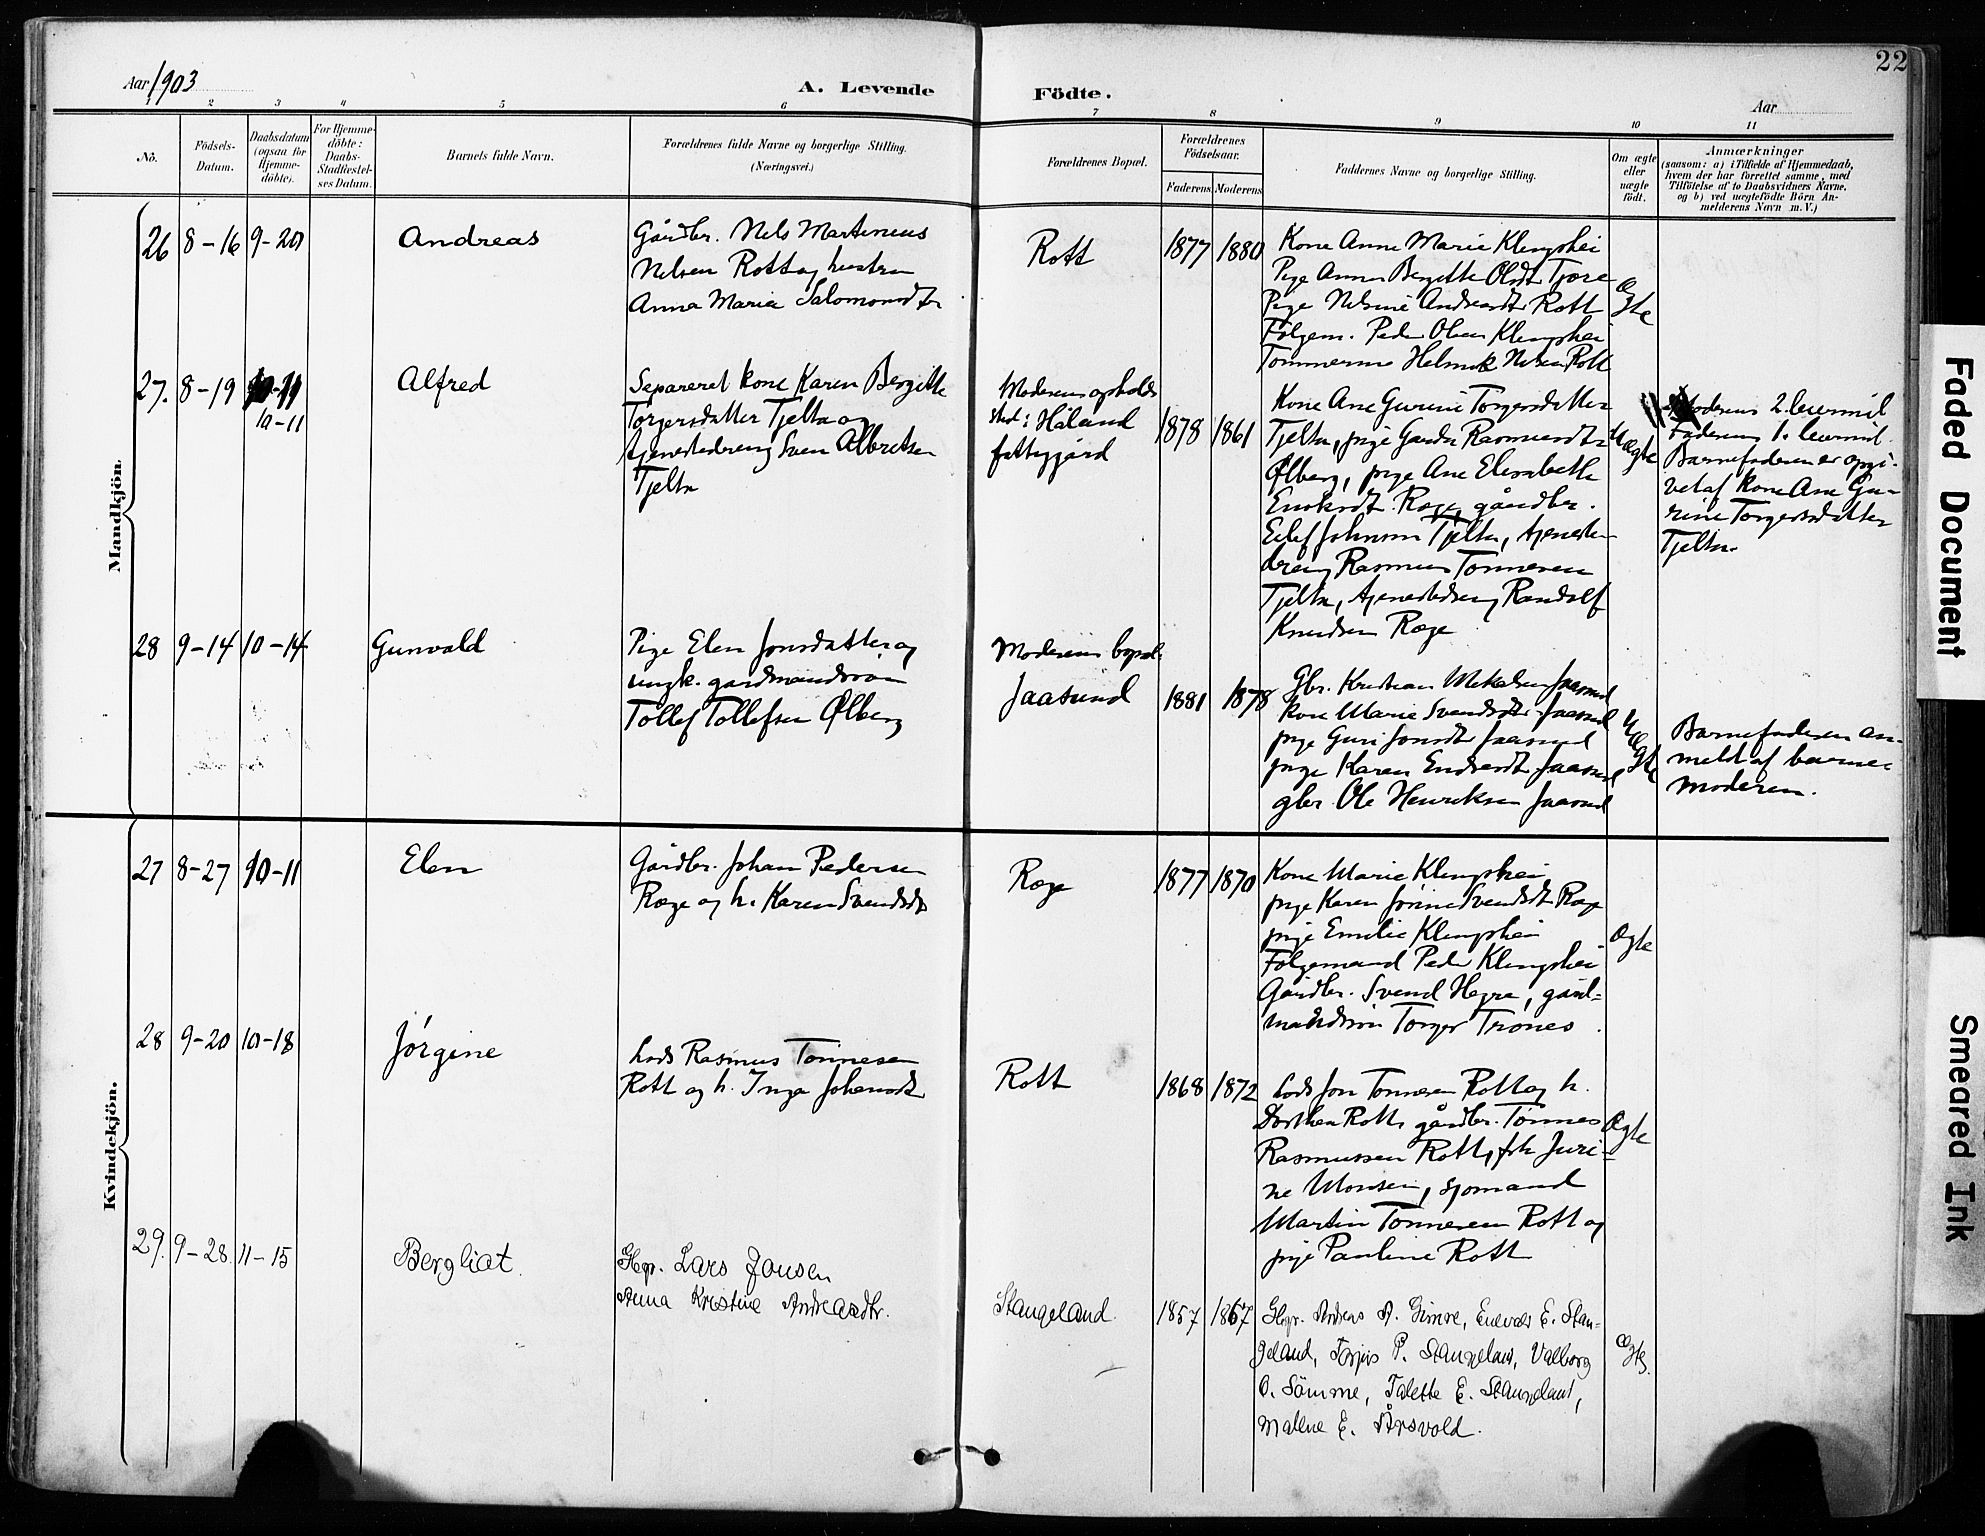 22
Aar 1903
A. Levende Födte.
Aar
1 2 3 4 5 6 7 8 9 10 11
No.
Födsels-
Datum.
Daabsdatum
(ogsaa for
Hjemme-
döbte).
For Hjemme-
döbte:
Daabs-
Stadfæstel-
ses Datum.
Barnets fulde Navn.
Forældrenes fulde Navne og borgerlige Stilling.
(Næringsvei.)
Forældrenes Bopæl.
Forældrenes
Födselsaar.
Faderens Moderens
Faddernes Navne og borgerlige Stilling.
Om ægte
eller
uægte
födt.
Anmærkninger
(saasom: a) i Tilfælde af Hjemmedaab,
hvem der har forrettet samme, med
Tilföielse af to Daabsvidners Navne,
og b) ved uægtefödte Börn An-
melderens Navn m. V.)
Mandkjön.
26 8-16 9-20 Andreas
Gårdbr. Nels Martinius
Nelsen Rott og hustru
Anna Maria Salomonsdtr
Rott
1877 1880
Kone Anne Marie Klingshei
Pige Anna Bergitte Olsdt Tjore
Pige Nelsine Andreasdt Rott
Følgem. Peder Olsen Klingshei
Tømmerm Helmik Nelsen Rott
Ægte
27. 8-19
10-11
Alfred
Separeret kone Karen Bergitte
Torgersdatter Tjelta og
tjenestedreng Sven Albretsen
Tjelta
Moderens opholds
sted: Håland
fattiggård
1878 1861
Kone Ane Gurine Torgersdatter
Tjelta, pige Rasmusdtr
Ølberg, pige Ane Elisabeth
Ræge, gårdbr.
Eilef Johnsen Tjelta, tjeneste
dreng Rasmus Tønnesen
Tjelta, tjenestedreng Randolf
Knudsen Ræge
Uægte
Moderens 2. leiermål
Faderens 1. leiermål.
Barnefaderen er opgi-
vet af kone Ane Gu-
rine Torgersdatter
Tjelta.
28 9-14 10-14 Gunvald
Pige Elen Jonsdatter og
ungk. gardmandssøn
Tollef Tollefsen Ølberg
Moderens bopæl:
Jaasund
1881 1878
Gbr. Kristian Mikalsen Jaasund
kone Marie Svendsdtr Jaasund
pige Guri Jonsdt Jaasund
pige Karen Endresdt Jaasund
gbr. Ole Henriksen Jaasund
Uægte
Barnefaderen an-
meldt af barne-
moderen.
Kvindekjön.
27 8-27 10-11 Elen
Gårdbr. Johan Pedersen
Ræge og h. Karen Svendsdt
Ræge
1877 1870
Kone Marie Klingshei
pige Karen Jørine Svendsdt Ræge
pige Emilie Klingshei
Følgemand Peder Klingshei
Gårdbr. Svend Hegre, gård-
mandssøn Torger Trones.
Ægte
28 9-20 10-18 Jørgine
Lods Rasmus Tønnesen
Rott og h. Inga Johansdt
Rott
1868 1872
Lods Jon Tønnesen Rott og h.
Dorthea Rott, gårdbr. Tønnes
Rasmussen Rott, frk Juri-
ne Monsen, sjømand
Martin Tønnesen Rott og
pige Pauline Rott
Ægte
29. 9-28. 11-15 Bergliot.
Gbr. Lars Jonsen
Anna Kristine Andreasdtr.
Stangeland.
1857 1867
Gbr. Andreas A. Gimre, Enevald E. Stan-
geland, Torjus P. Stangeland, Valborg
O. Sömme, Talette E. Stangeland,
Malene E. Årsvold.
ægte.
Faded Document
Smeared Ink